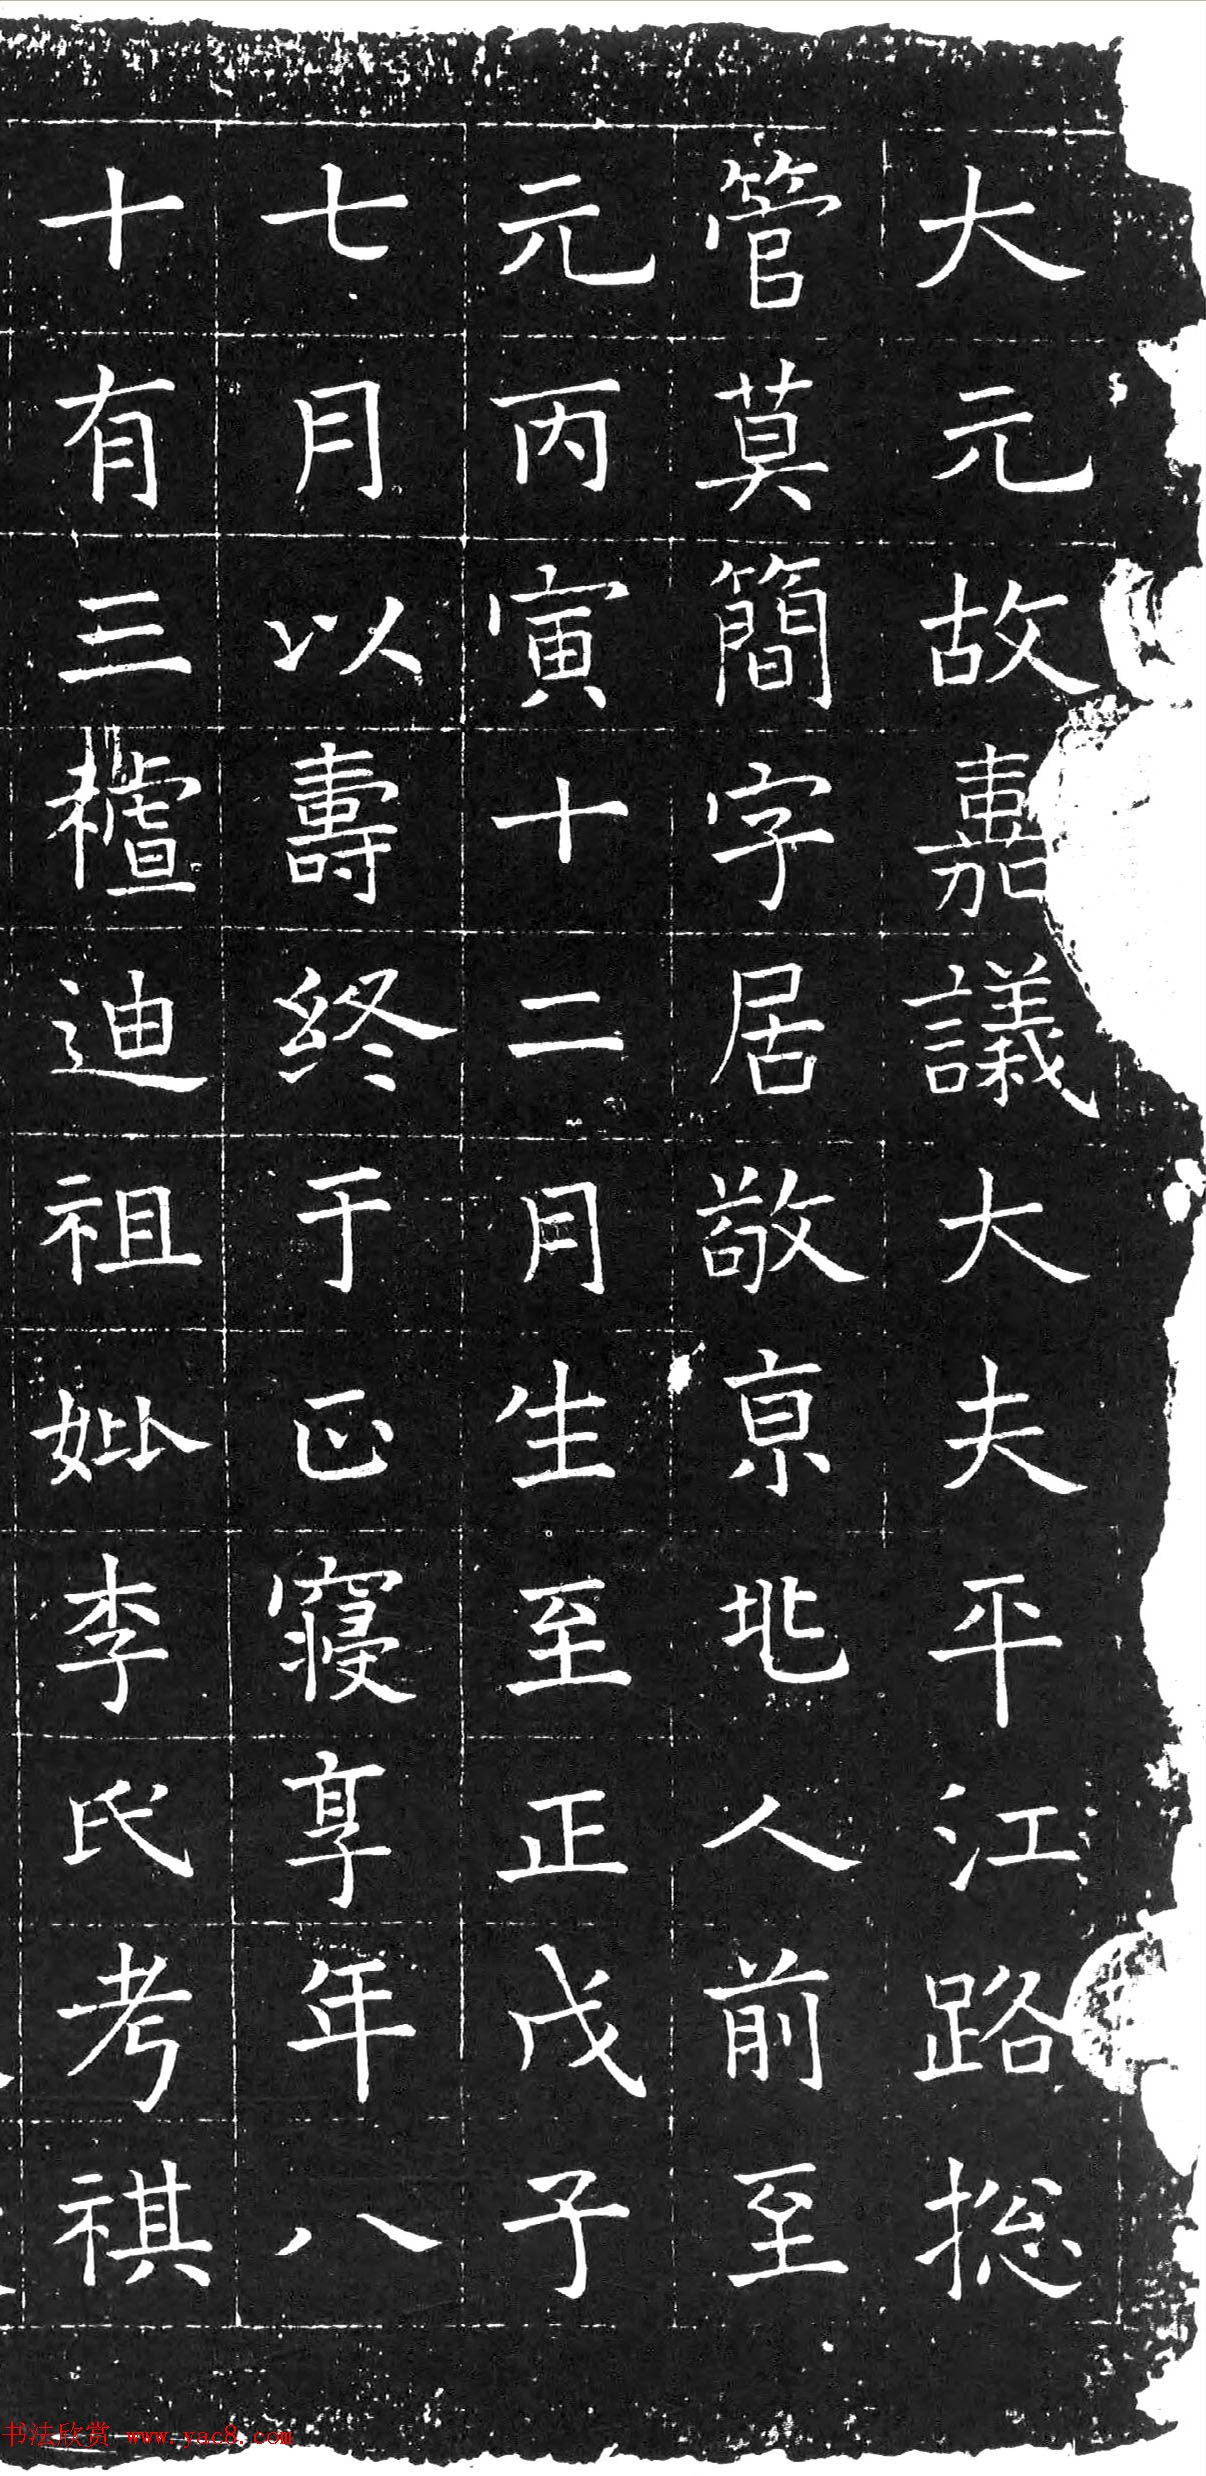 大元故嘉議大夫平江路摠
管莫簡字居敬京兆人前至
元丙寅十二月生至正戊子
七月以壽終于正寢享年八
十有三迪祖妣李氏考祺
书法欣赏 www.yac8.com